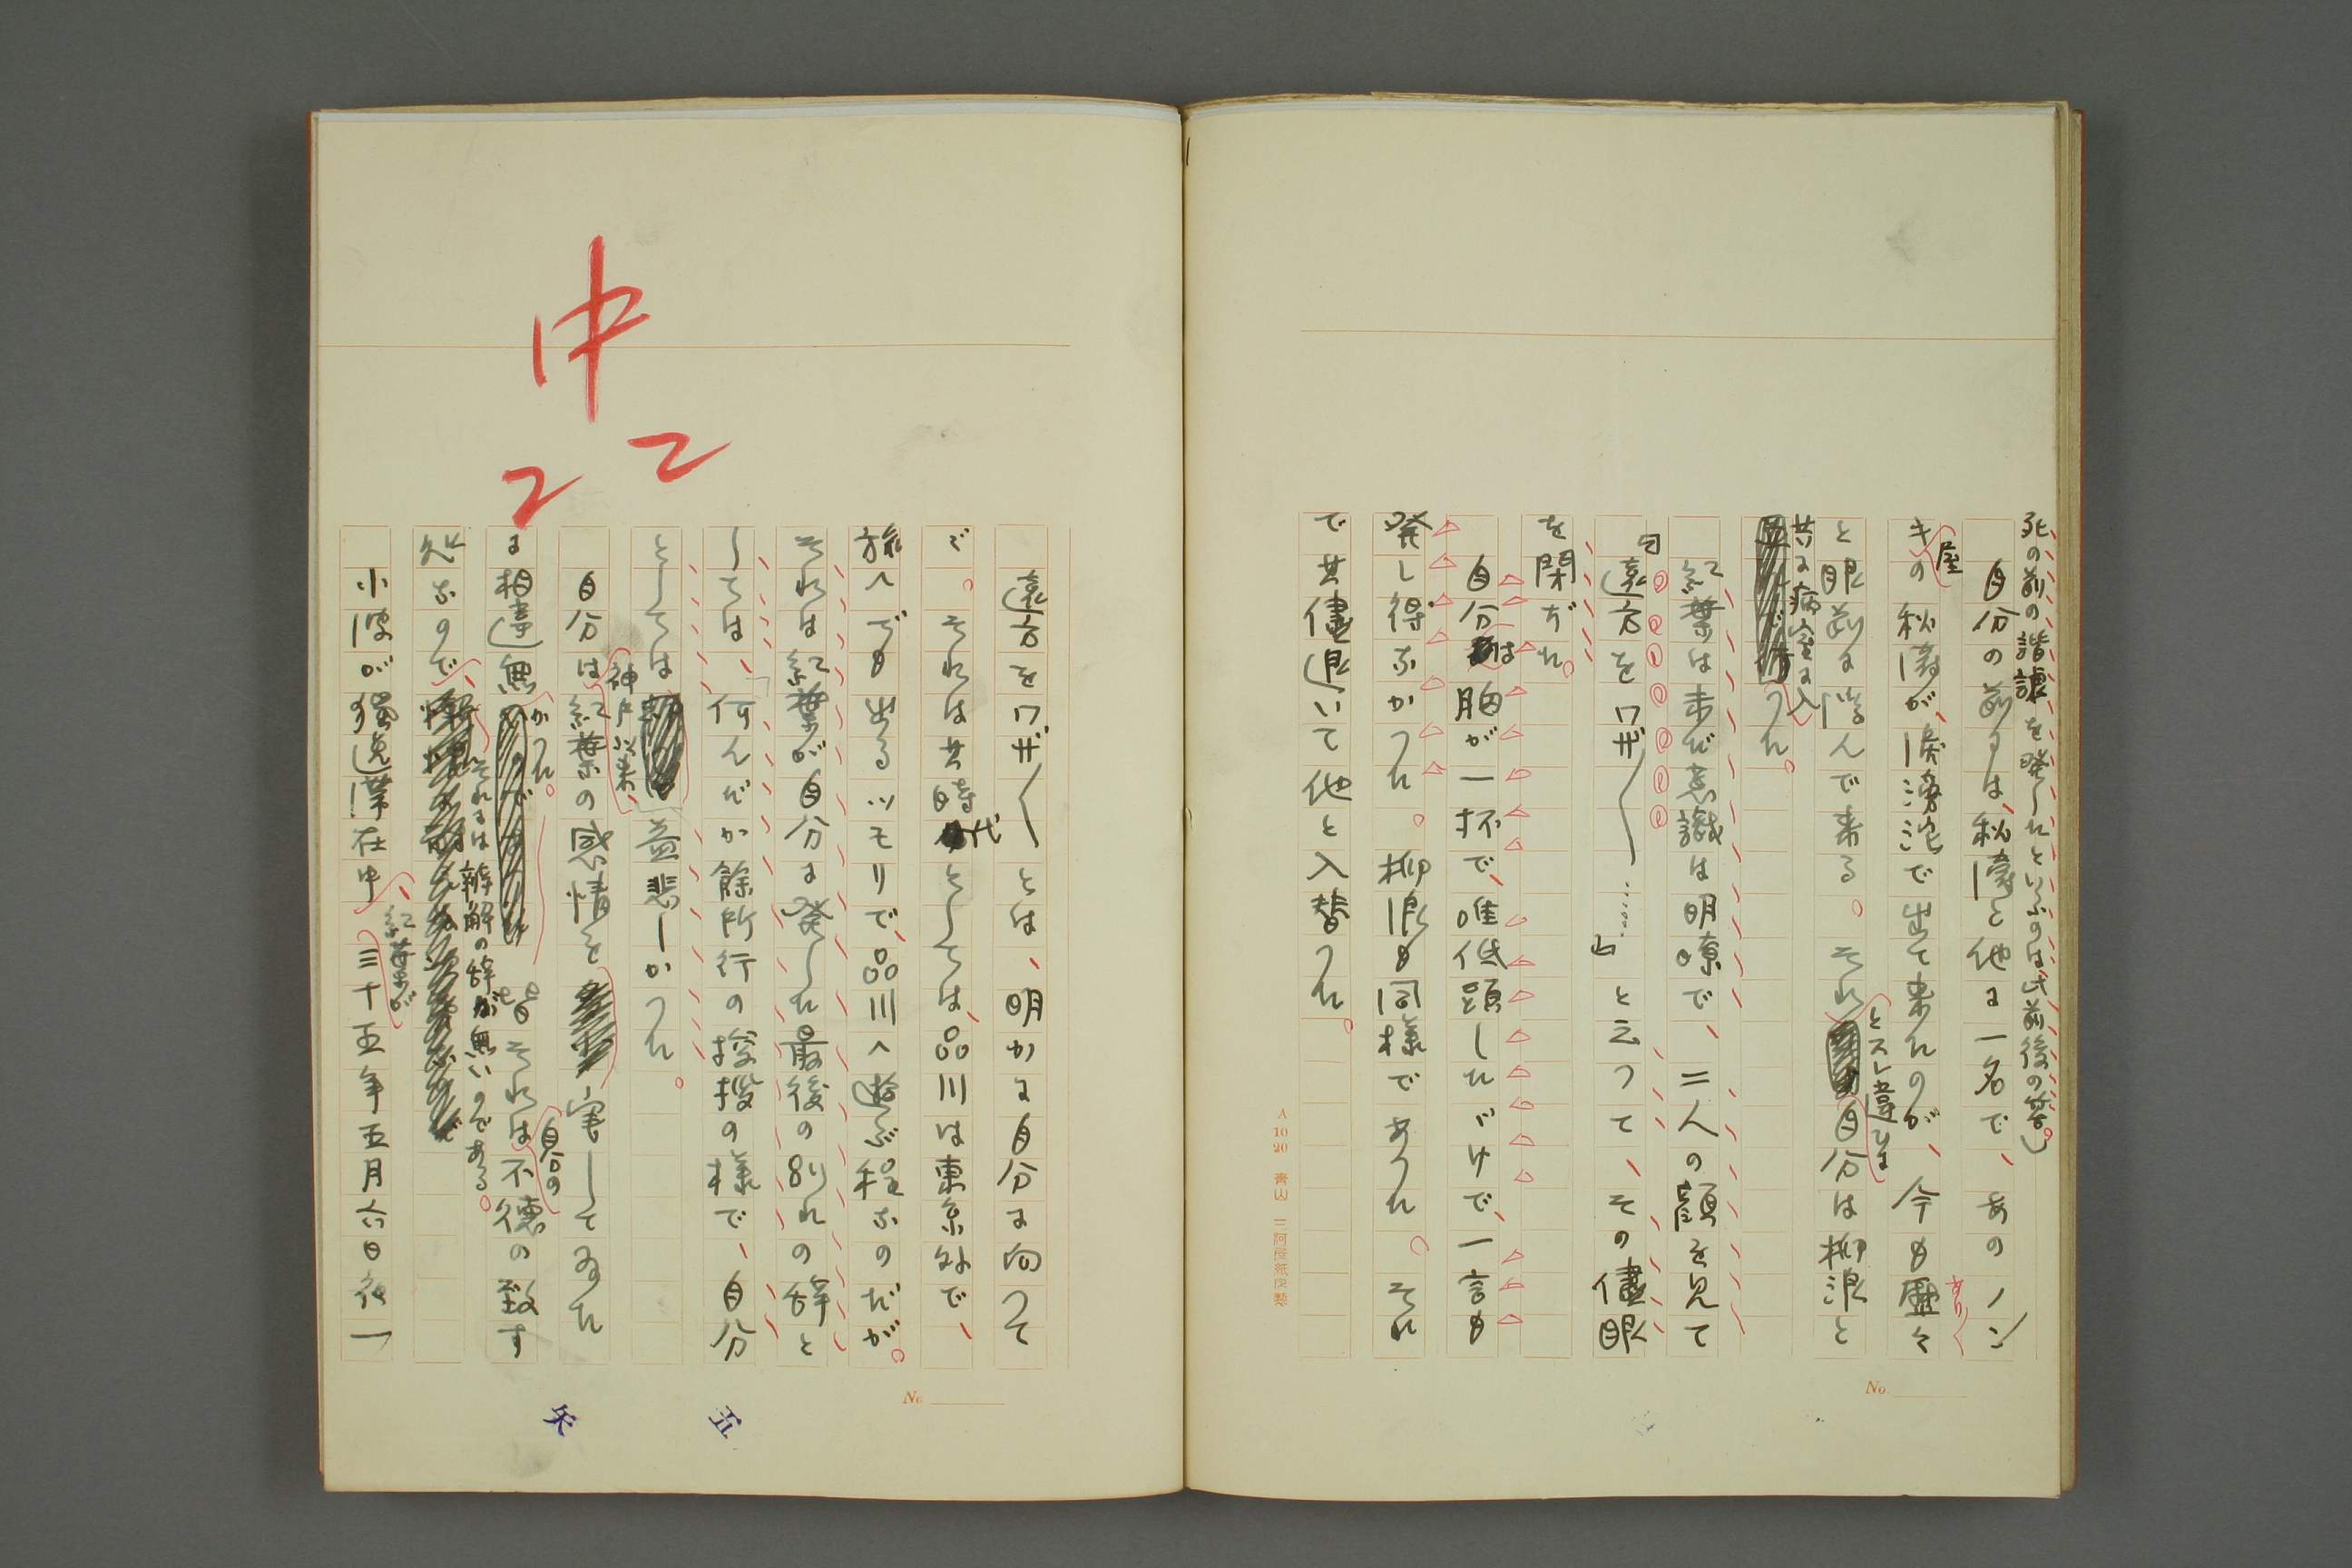 死の前の諧謔を発したといふのは此前後の筈。)
自分の前には、秋濤と他に一名で、あのノン
キ屋の秋濤が、涙滂沱で出て来たのが、今も歴々
あり〱
と眼前に浮んで来る。それとスレ違ひに自分は柳浪と
共に病室に入
つた。
紅葉は未だ意識は明瞭で、二人の顔を見て
「遠方をワザ〱……」と云つて、その儘眼
を閉ぢた。
自分は胸が一杯で、唯低頭しただけで、一言も
発し得なかつた。柳浪も同様であつた。それ
で其儘退いて他と入替つた。
A 10 20 青山
No
遠方をワザ〱とは、明かに自分に向つて
で。それは其時代としては、品川は東京外で、
旅へでも出るツモリで、品川へ遊ぶ程なのだが。
それは紅葉が自分に発した最後の別れの辞と
しては、何んだか余所行の挨拶の様で、自分
としては益悲しかつた。
自分は神戸以来、紅葉の感情を害してゐた
に相違無かつた。皆それは自分の不徳の致す
処なので、それには辯解の辞が無いのである。
小波が独逸滞在中、紅葉が三十五年五月六日夜一
中
2
2
No
五
矢